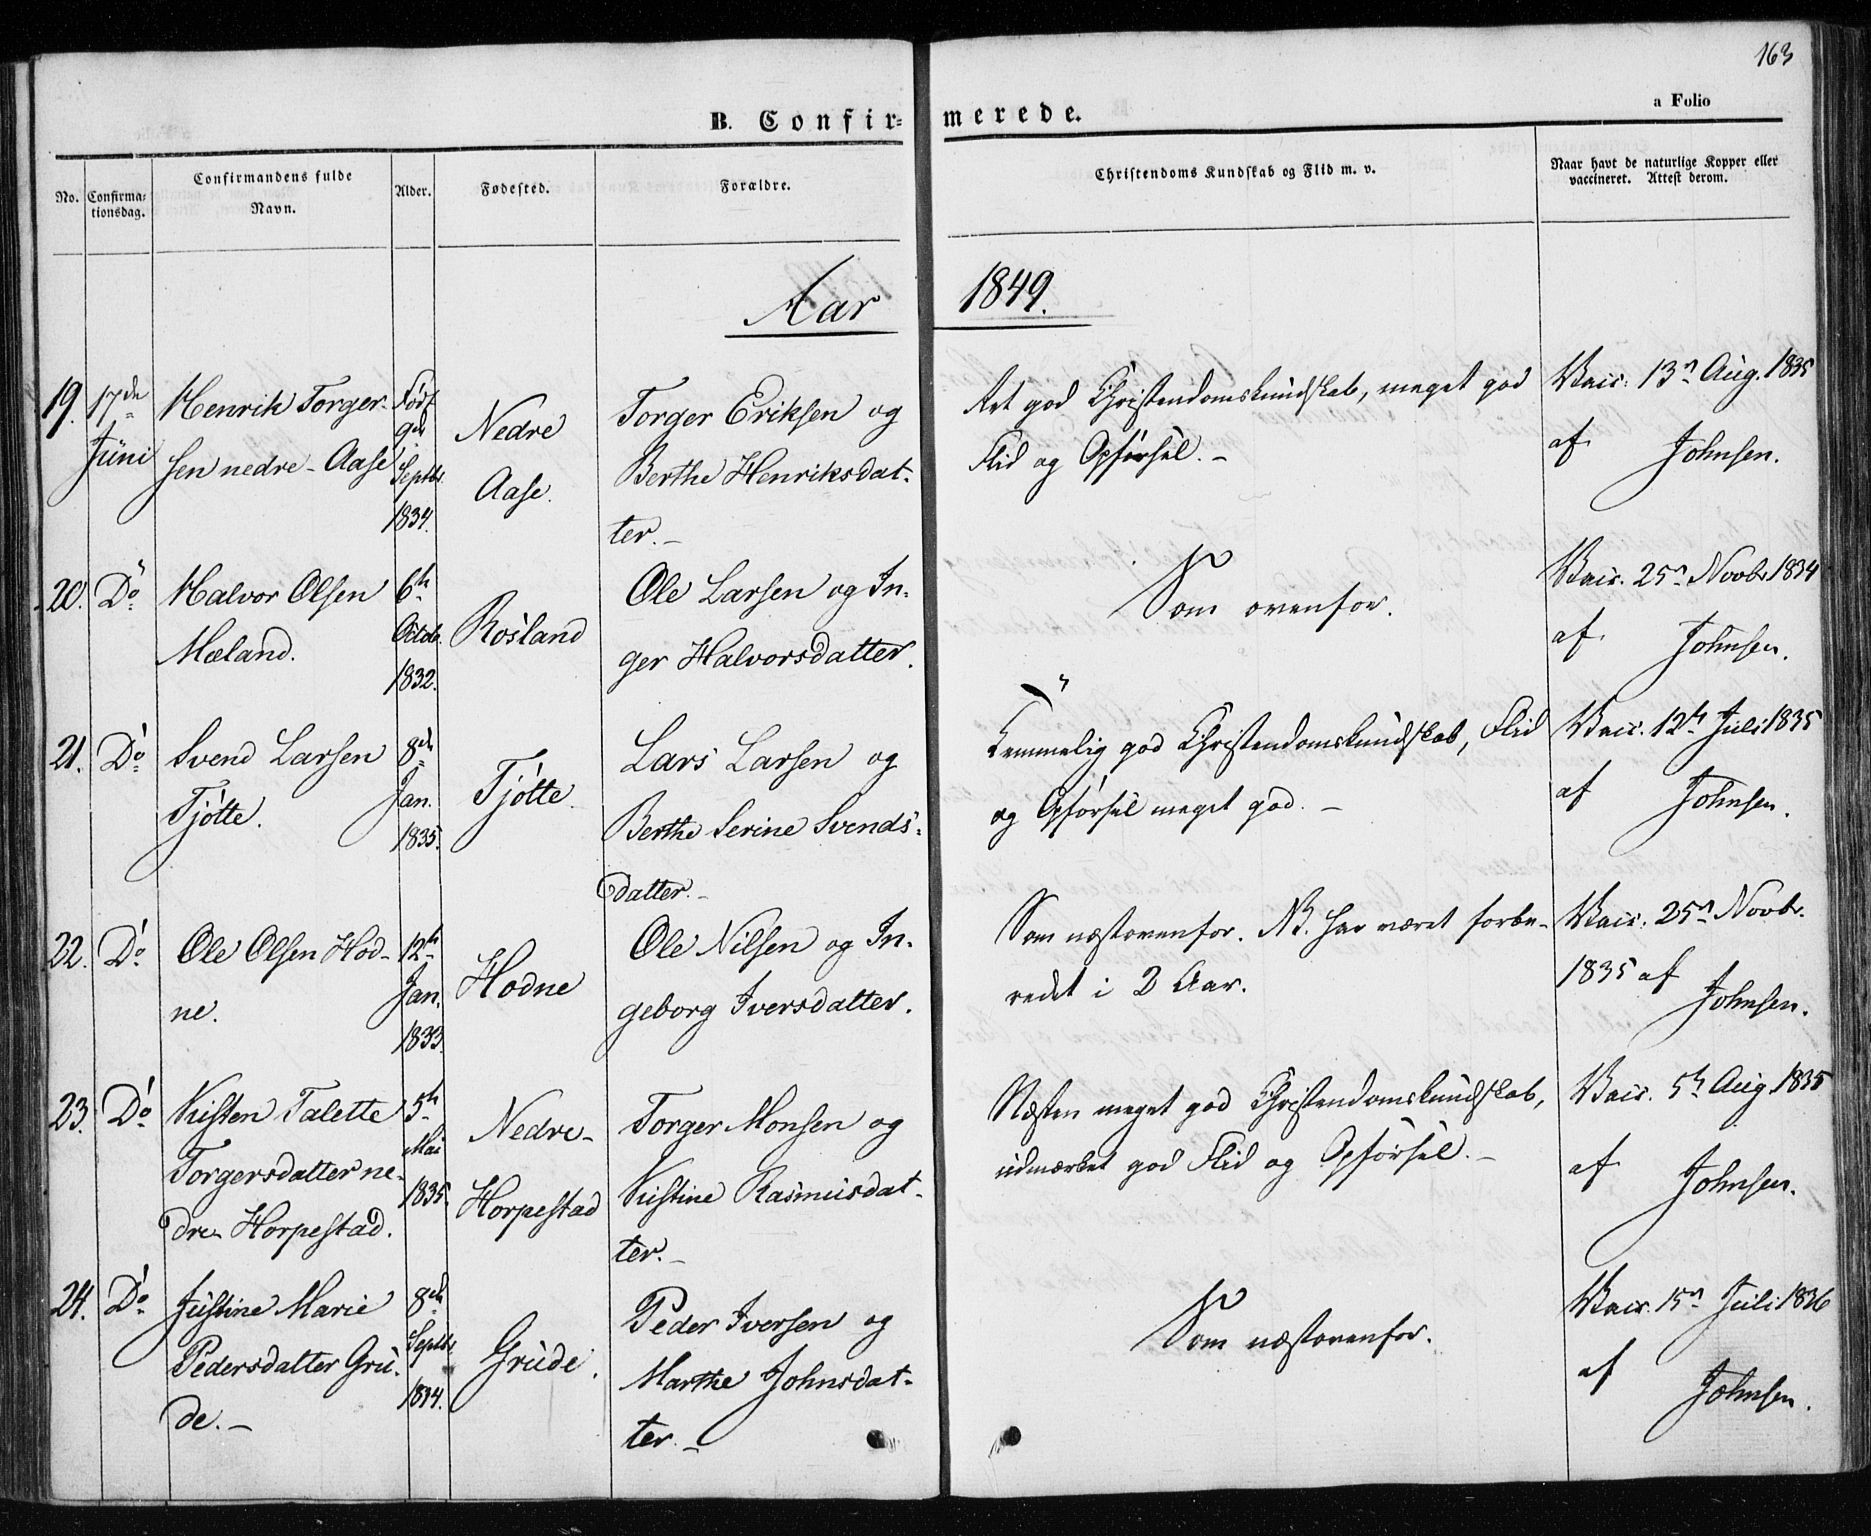 163
a Folio
B. Confir= merede.
No.
Confirma=
tionsdag.
Confirmandens fulde
Navn.
Alder.
Fødested.
Forældre.
Christendoms Kundskab og Flid m. v.
Naar havt de naturlige Kopper eller
vaccineret. Attest derom.
Aar 1849.
19.
17de
Júni
Henrik Torger-
sen nedre-Aase
Født
9de
Septbr.
1834.
Nedre
Aase.
Torger Eriksen og
Berthe Henriksdat-
ter.-
Ret god Christendomskundskab, meget god
Flid og Opførsel.-
Vacc. 13n Aug. 1835
af Johnsen.
20.
Do
Halvor Olsen
Mæland.
6te
Octob.
1832.
Rosland
Ole Larsen og In-
ger Halvorsdatter.
Som ovenfor.
Vacc. 25n Novbr 1834
af Johnsen.
21.
Do
Svend Larsen
Tjøtte.
8de
Jan.
1835.
Tjøtte.
Lars Larsen og
Berthe Serine Svends-
datter.-
Temmelig god Christendomskundskab, Flid
og Opførsel meget god.-
Vacc. 12te Juli 1835
af Johnsen.
22.
Do
Ole Olsen Hod-
ne.
12te
Jan.
1833.
Hodne
Ole Nilsen og In-
geborg Iversdatter.
Som næstovenfor. NB. har været forbe-
redet i 2 Aar.
Vacc. 25n Novbr.
1835 af
Johnsen.
23.
Do
Kisten Talette
Torgersdatter ne-
dre-Horpestad.
5te
Mai
1835.
Nedre-
Horpestad
Torger Monsen og
Kistine Rasmusdat-
ter.-
Næsten meget god Christendomskundskab,
udmærket god Flid og Opførsel.-
Vacc. 5te Aug. 1835
af Johnsen.
24.
Do
Justine Marie
Pedersdatter Gru-
de.-
8de
Septbr
1834.
Grude.
Peder Iversen og
Marthe Johnsdat-
ter.-
Som næstovenfor.
Vacc. 15n Juli 1836
af Johnsen.